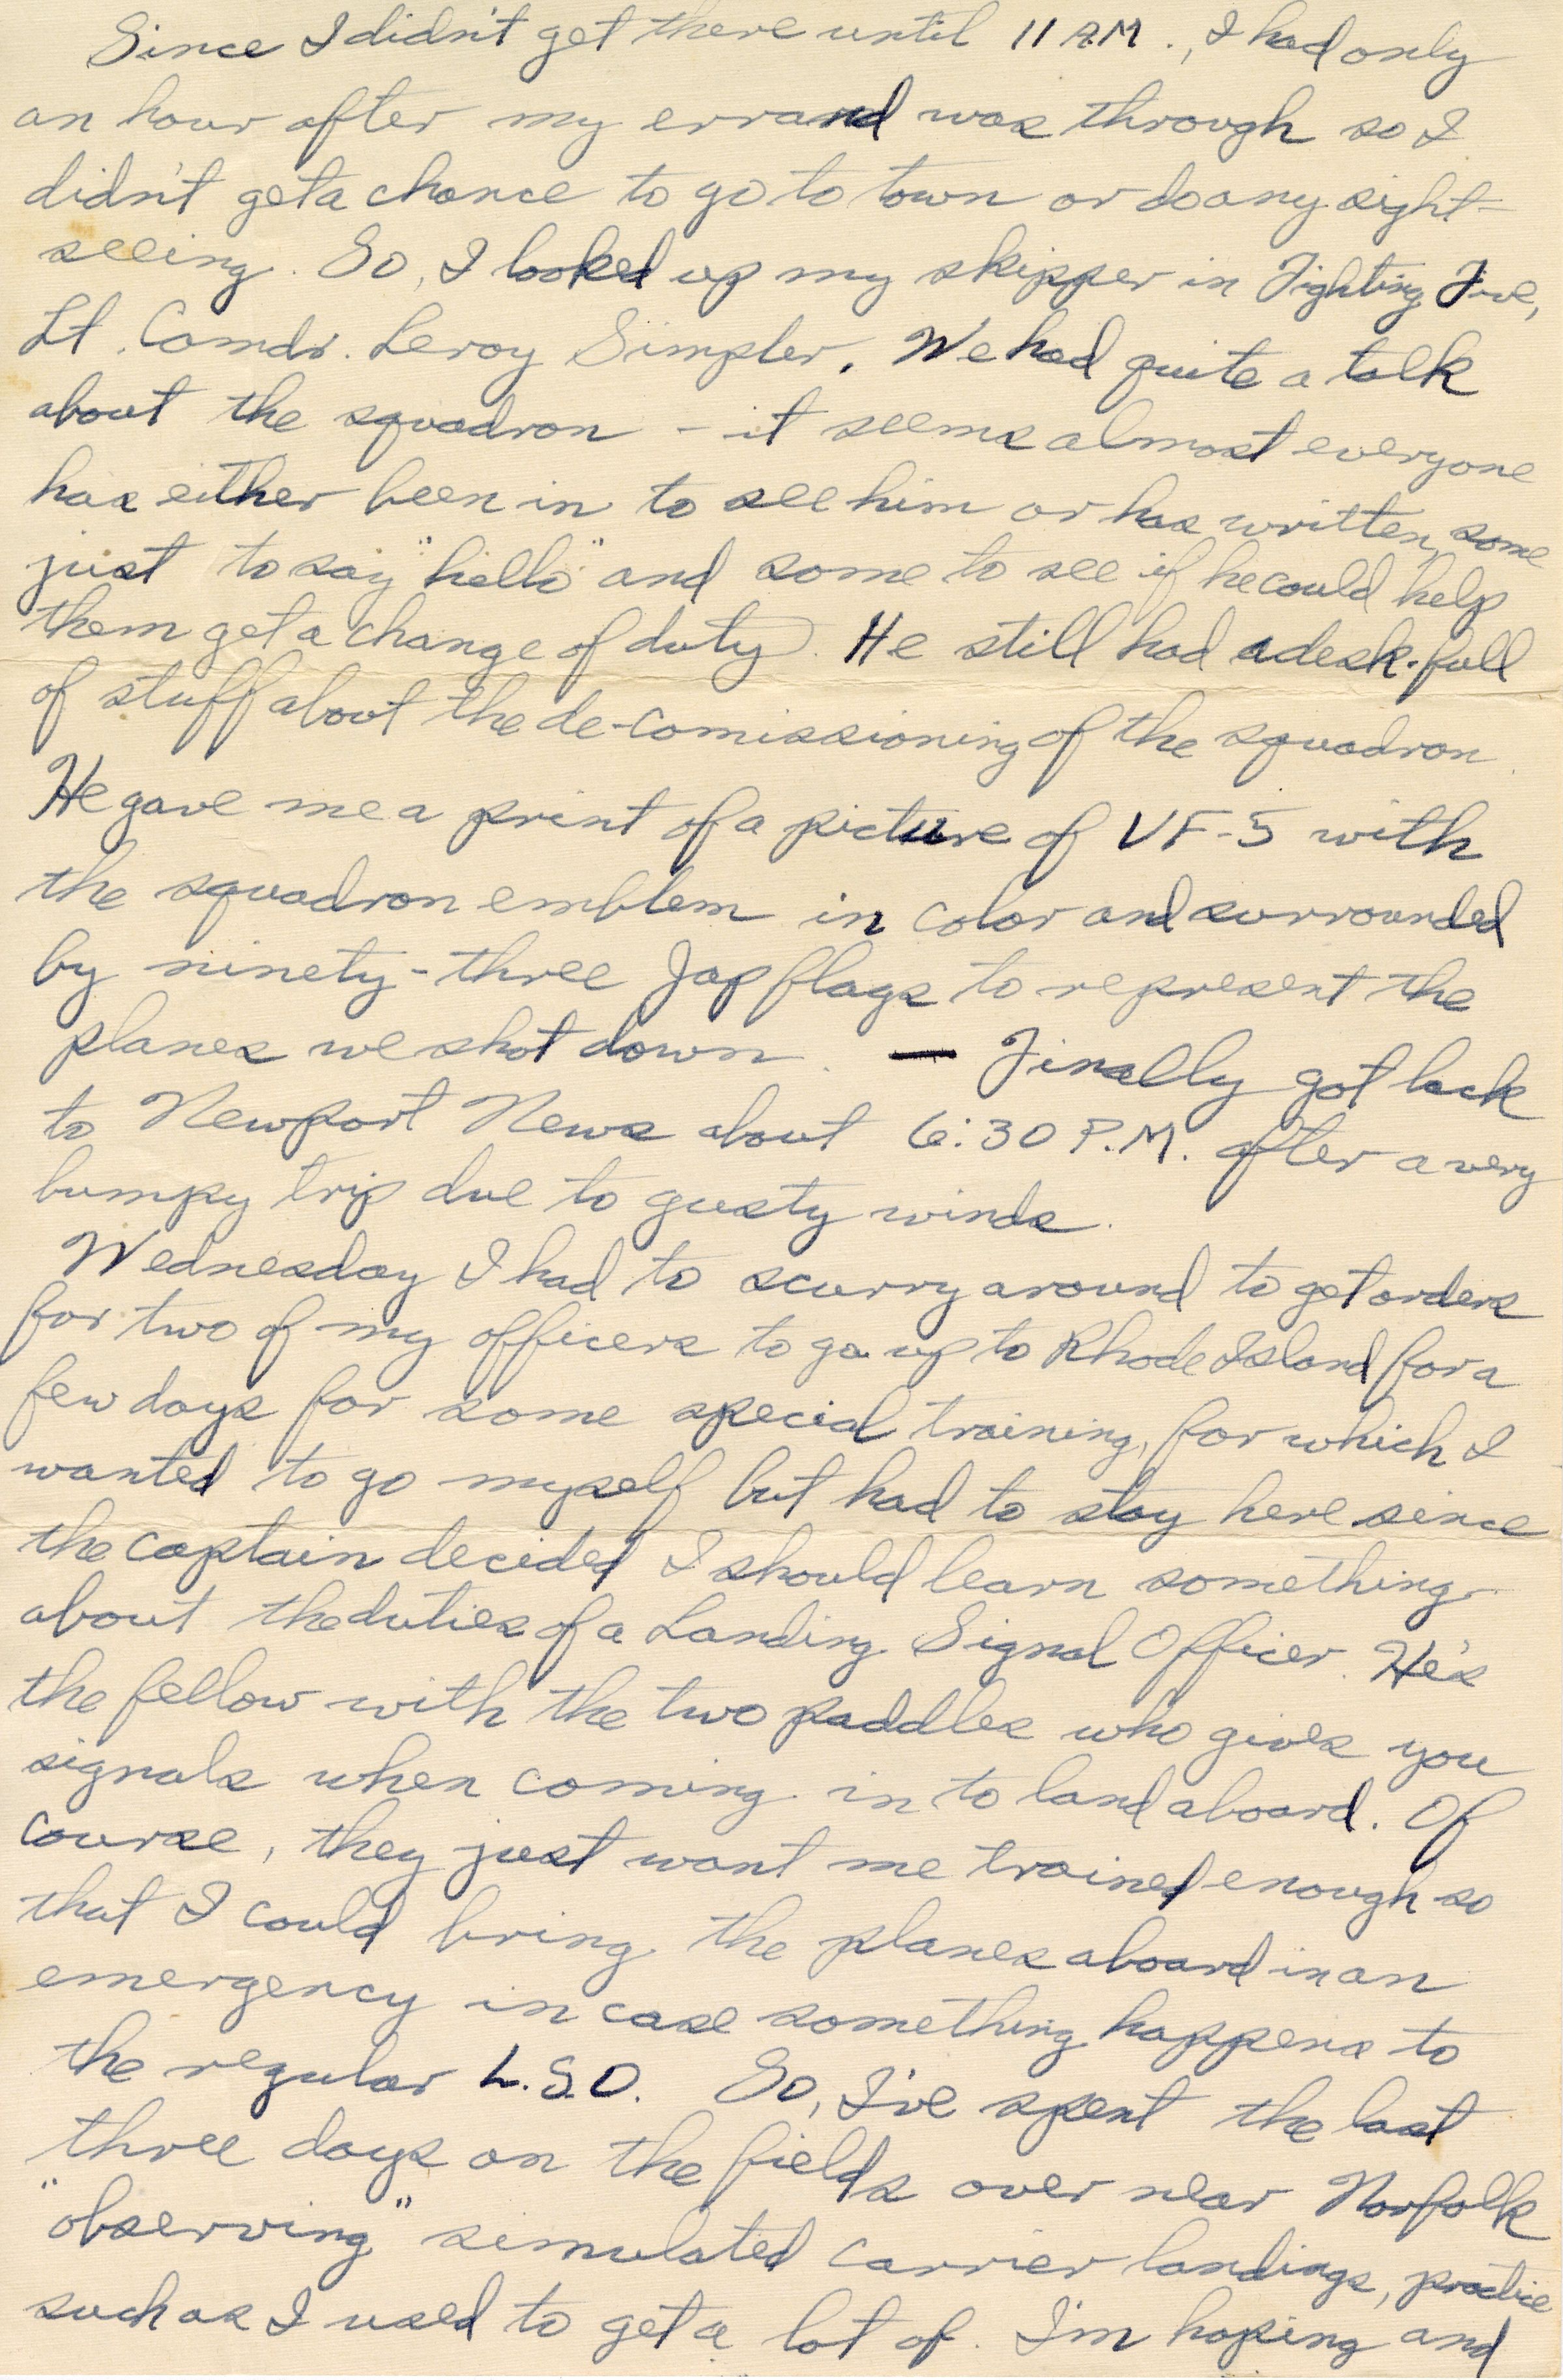 Since I didn't get there until 11 A.M., I had only
an hour after my errand was through so I
didn't get a chance to go to town or do any sight-
seeing. So, I looked up my skipper in Fighting Five,
Lt. Comdr. Leroy Simpler. We had quite a talk
about the squadron - it seems almost everyone
has either been in to see him or has written, some
just to say "hello" and some to see if he could help
them get a change of duty. He still had a desk-full
of stuff about the de-comissioning of the squadron.
He gave me a print of a picture of VF-5 with
the squadron emblem in color and surrounded
by ninety-three Jap flags to represent the
planes we shot down. — Finally got back
to Newport News about 6:30 P.M. after a very
bumpy trip due to gusty winds.
Wednesday I had to scurry around to get orders
for two of my officers to go up to Rhode Island for a
few days for some special training, for which I
wanted to go myself but had to stay here since
the captain decided I should learn something
about the duties of a Landing Signal Officer. He's
the fellow with the two paddles who gives you
signals when coming in to land aboard. Of
course, they just want me trained enough so
that I could bring the planes aboard in an
emergency in case something happens to
the regular L.S.O. So, I've spent the last
three days on the fields over near Norfolk
"observing" simulated carrier landings, practice
such as I used to get a lot of. I'm hoping and